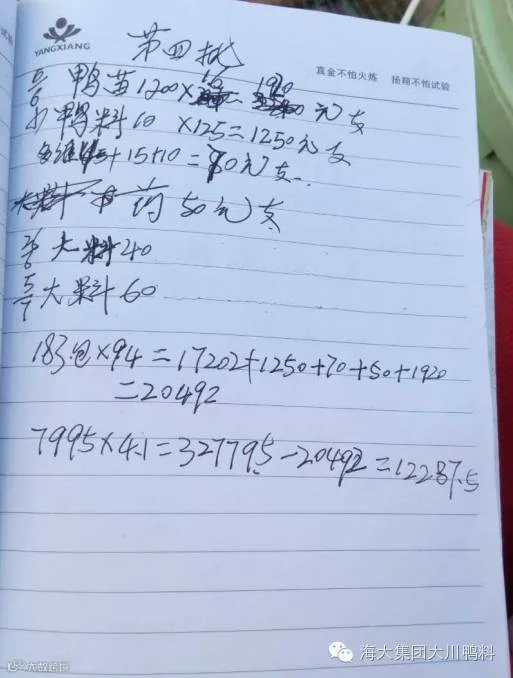 YANGXIANG
第四批
真金不怕火炼 扬翔不怕试验
5/6 鸭苗1200×1.6= 1920元支
小鸭料10×125=1250元支
45+15+10=70元支
药50元支
大料40
5/7 大料60
183包×94=17202+1250+70+50+1920
=20492
7995×4.1=32779.5-20492=12287.5
海大集团大川鸭料
大数跨境